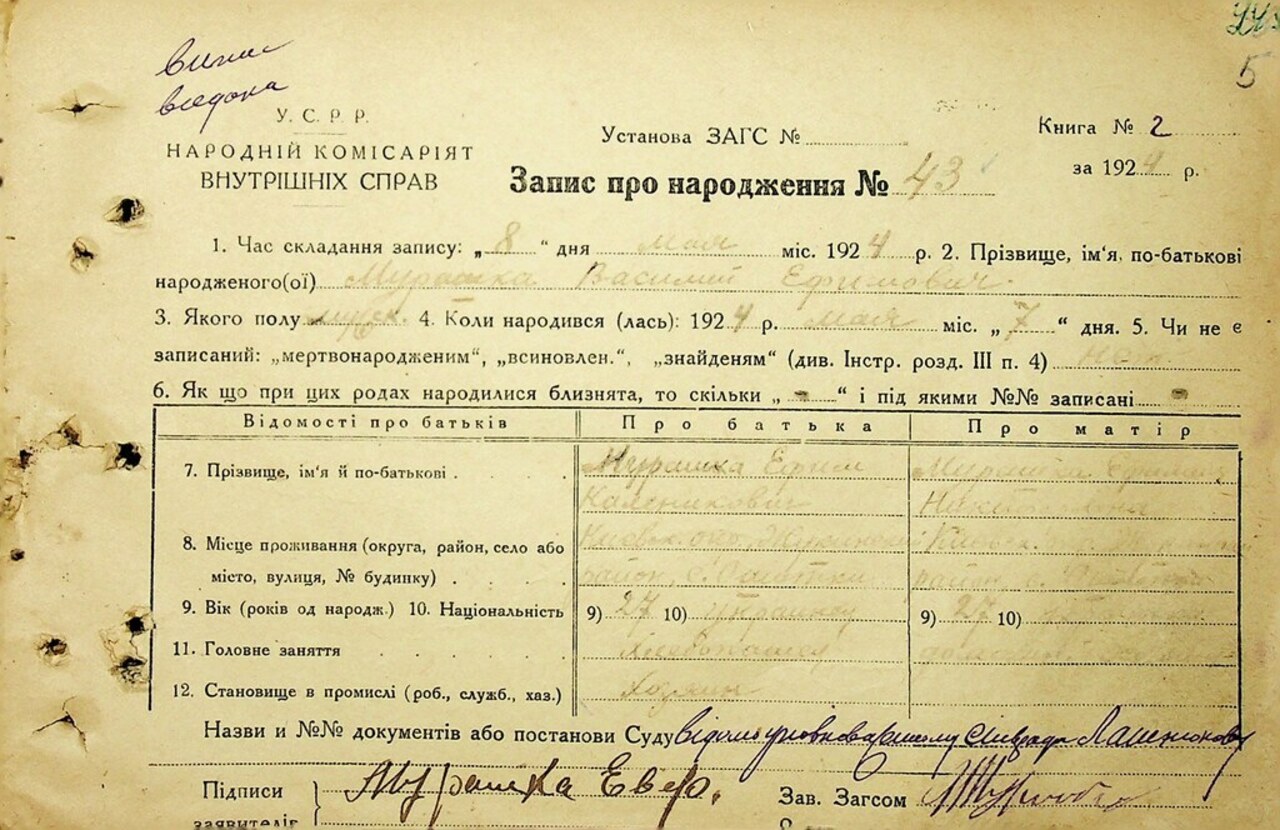 5
У. С. Р. Р.
НАРОДНІЙ КОМІСАРІЯТ
ВНУТРІШНІХ СПРАВ
Установа ЗАГС №
Книга № 2
за 1924 р.
Запис про народження № 43
1. Час складання запису: „ 8 “ дня мая міс. 1924 р. 2. Прізвище, ім'я, по-батькові
народженого(ої) Мурашка Василий Ефимович
3. Якого полу мужск. 4. Коли народився (лась): 1924 р. мая міс. „ 7 “ дня. 5. Чи не є
записаний: „мертвонародженим“, „всиновлен.“, „знайденям“ (див. Інстр. розд. III п. 4) нет
6. Як що при цих родах народилися близнята, то скільки „ - “ і під якими №№ записані -
Відомості про батьків Про батька Про матір
7. Прізвище, ім'я й по-батькові . . . . Мурашка Ефим Мурашка
Каленикович
8. Місце проживання (округа, район, село або
місто, вулиця, № будинку) . . . . район с. район с.
9. Вік (років од народж.) 10. Національність 9) 27 10) 9) 27 10)
11. Головне заняття . . . . . . Хлебопашец
12. Становище в промислі (роб., служб., хаз.) Хозяин
Назви и №№ документів або постанови Суду
Підписи
заявителів } Мурашка Евфр.
Зав. Загсом